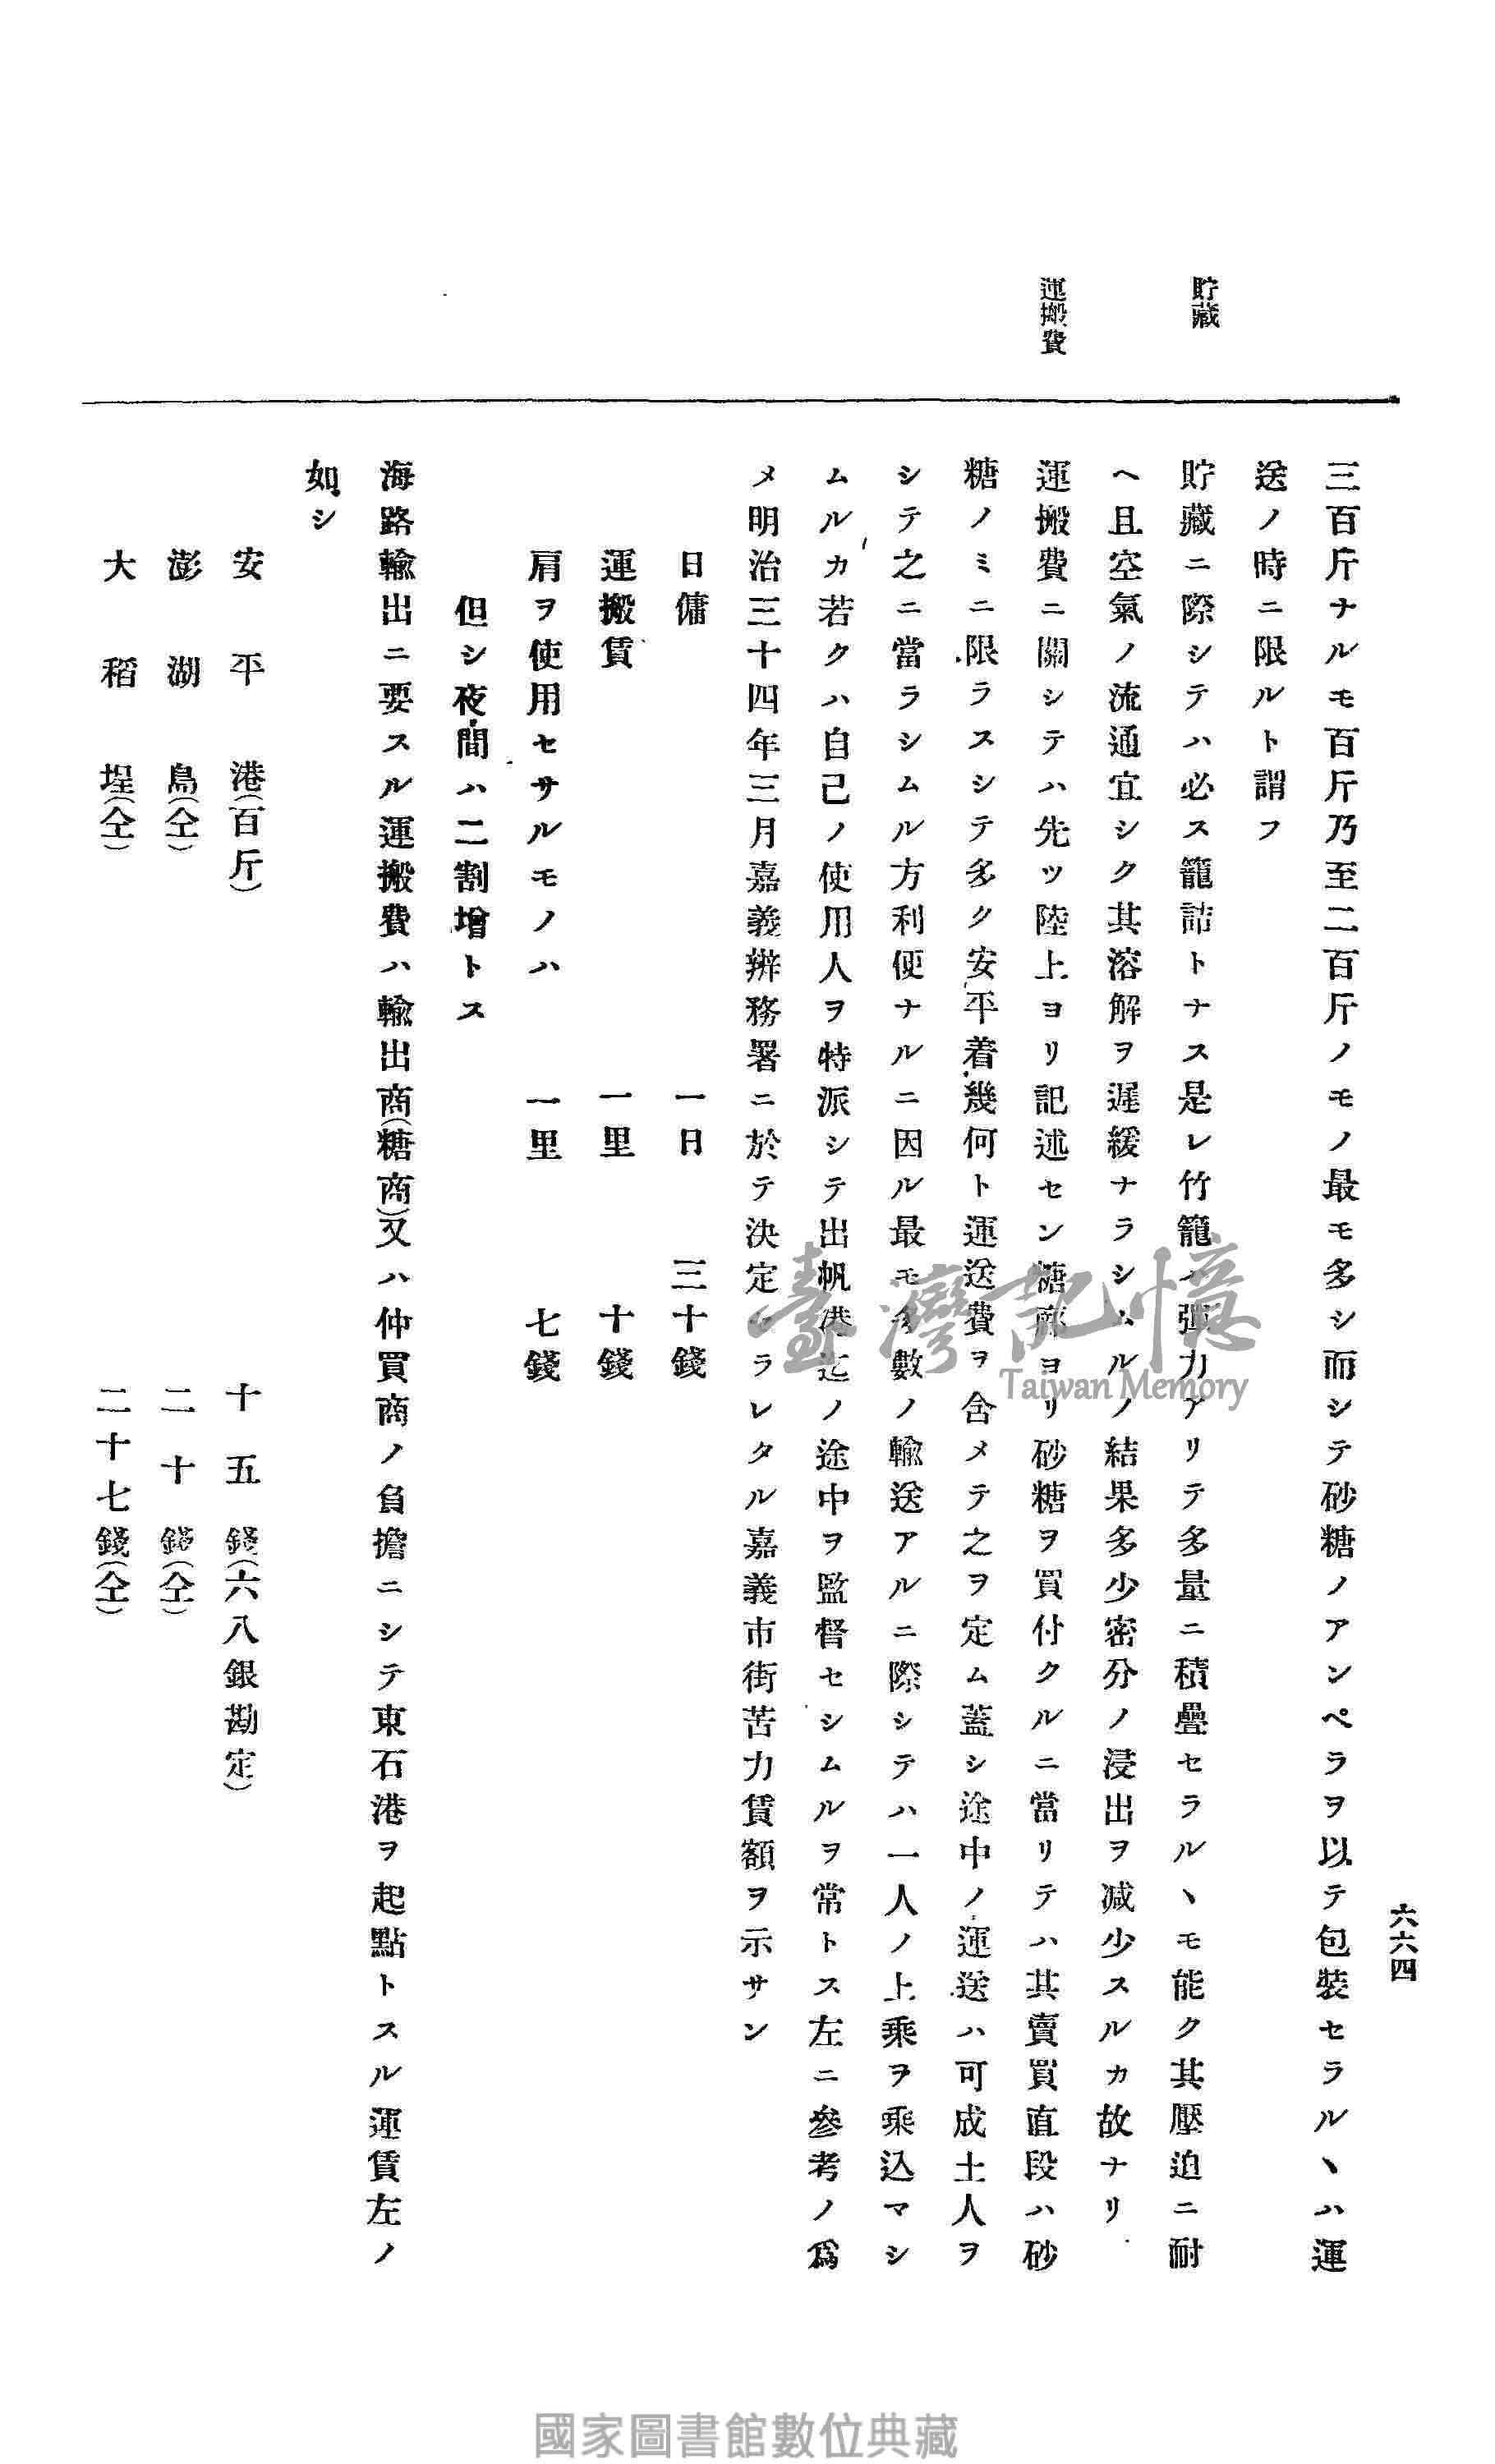 六六四
貯藏
運搬費
三百斤ナルモ百斤乃至二百斤ノモノ最モ多シ而シテ砂糖ノアンペラヲ以テ包裝セラルヽハ運
送ノ時ニ限ルト謂フ
貯藏ニ際シテハ必ス籠詰トナス是レ竹籠ハ彈力アリテ多量ニ積疊セラルヽモ能ク其壓迫ニ耐
ヘ且空氣ノ流通宜シク其溶解ヲ遲緩ナラシムルノ結果多少密分ノ浸出ヲ減少スルカ故ナリ
運搬費ニ關シテハ先ツ陸上ヨリ記述セン糖廍ヨリ砂糖ヲ買付クルニ當リテハ其賣買直段ハ砂
糖ノミニ限ラスシテ多ク安平着幾何ト運送費ヲ含メテ之ヲ定ム蓋シ途中ノ運送ハ可成土人ヲ
シテ之ニ當ラシムル方利便ナルニ因ル最モ多數ノ輸送アルニ際シテハ一人ノ上乘ヲ乘込マシ
ムルカ若クハ自己ノ使用人ヲ特派シテ出帆港迄ノ途中ヲ監督セシムルヲ常トス左ニ參考ノ爲
メ明治三十四年三月嘉義辨務署ニ於テ決定セラレタル嘉義市街苦力賃額ヲ示サン
日傭 一日 三十錢
運搬賃 一里 十錢
肩ヲ使用セサルモノハ 一里 七錢
但シ夜間ハ二割增トス
海路輸出ニ要スル運搬費ハ輸出商(糖商)又ハ仲買商ノ負擔ニシテ東石港ヲ起點トスル運賃左ノ
如シ
安平港(百斤) 十五錢(六八銀勘定)
澎湖島(仝) 二十錢(仝)
大稻埕(仝) 二十七錢(仝)
臺灣記憶
Taiwan Memory
國家圖書館數位典藏